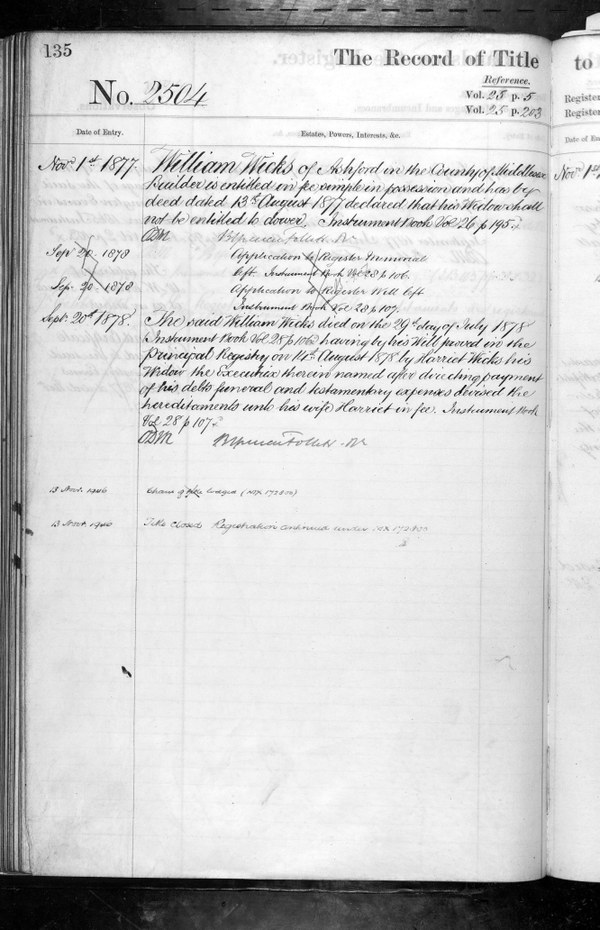 135
The Record of Title
No. 2504
Reference.
Vol. 25 p. 5
Vol. 25 p. 203
Date of Entry.
Estates, Powers, Interests, &c.
Nov. 1st 1877. William Wicks of Ashford in the County of Middlesex
Builder is entitled in fee simple in possession and has by
deed dated 13th August 1877 declared that his Widow shall
not be entitled to dower. Instrument Book Vol 26 p 195.
Sept 20. 1878 Application to Register Memorial
Instrument Book Vol 28 p 106.
Sep. 20. 1878 Application to Register Will
Instrument Book Vol 28 p 107.
Sept. 20th 1878. The said William Wicks died on the 29th day of July 1878
Instrument Book Vol. 28 p 106 having by his Will proved in the
Principal Registry on 14th August 1878 by Harriet Wicks his
Widow the Executrix therein named after directing payment
of his debts funeral and testamentary expenses devised the
hereditaments unto his wife Harriet in fee. Instrument Book
Vol. 28 p 107.
13 Novr. 1946 lodged
13 Novr. 1946 Title closed Registration continued under
to
Register
Register
Date of En
Novr 1st